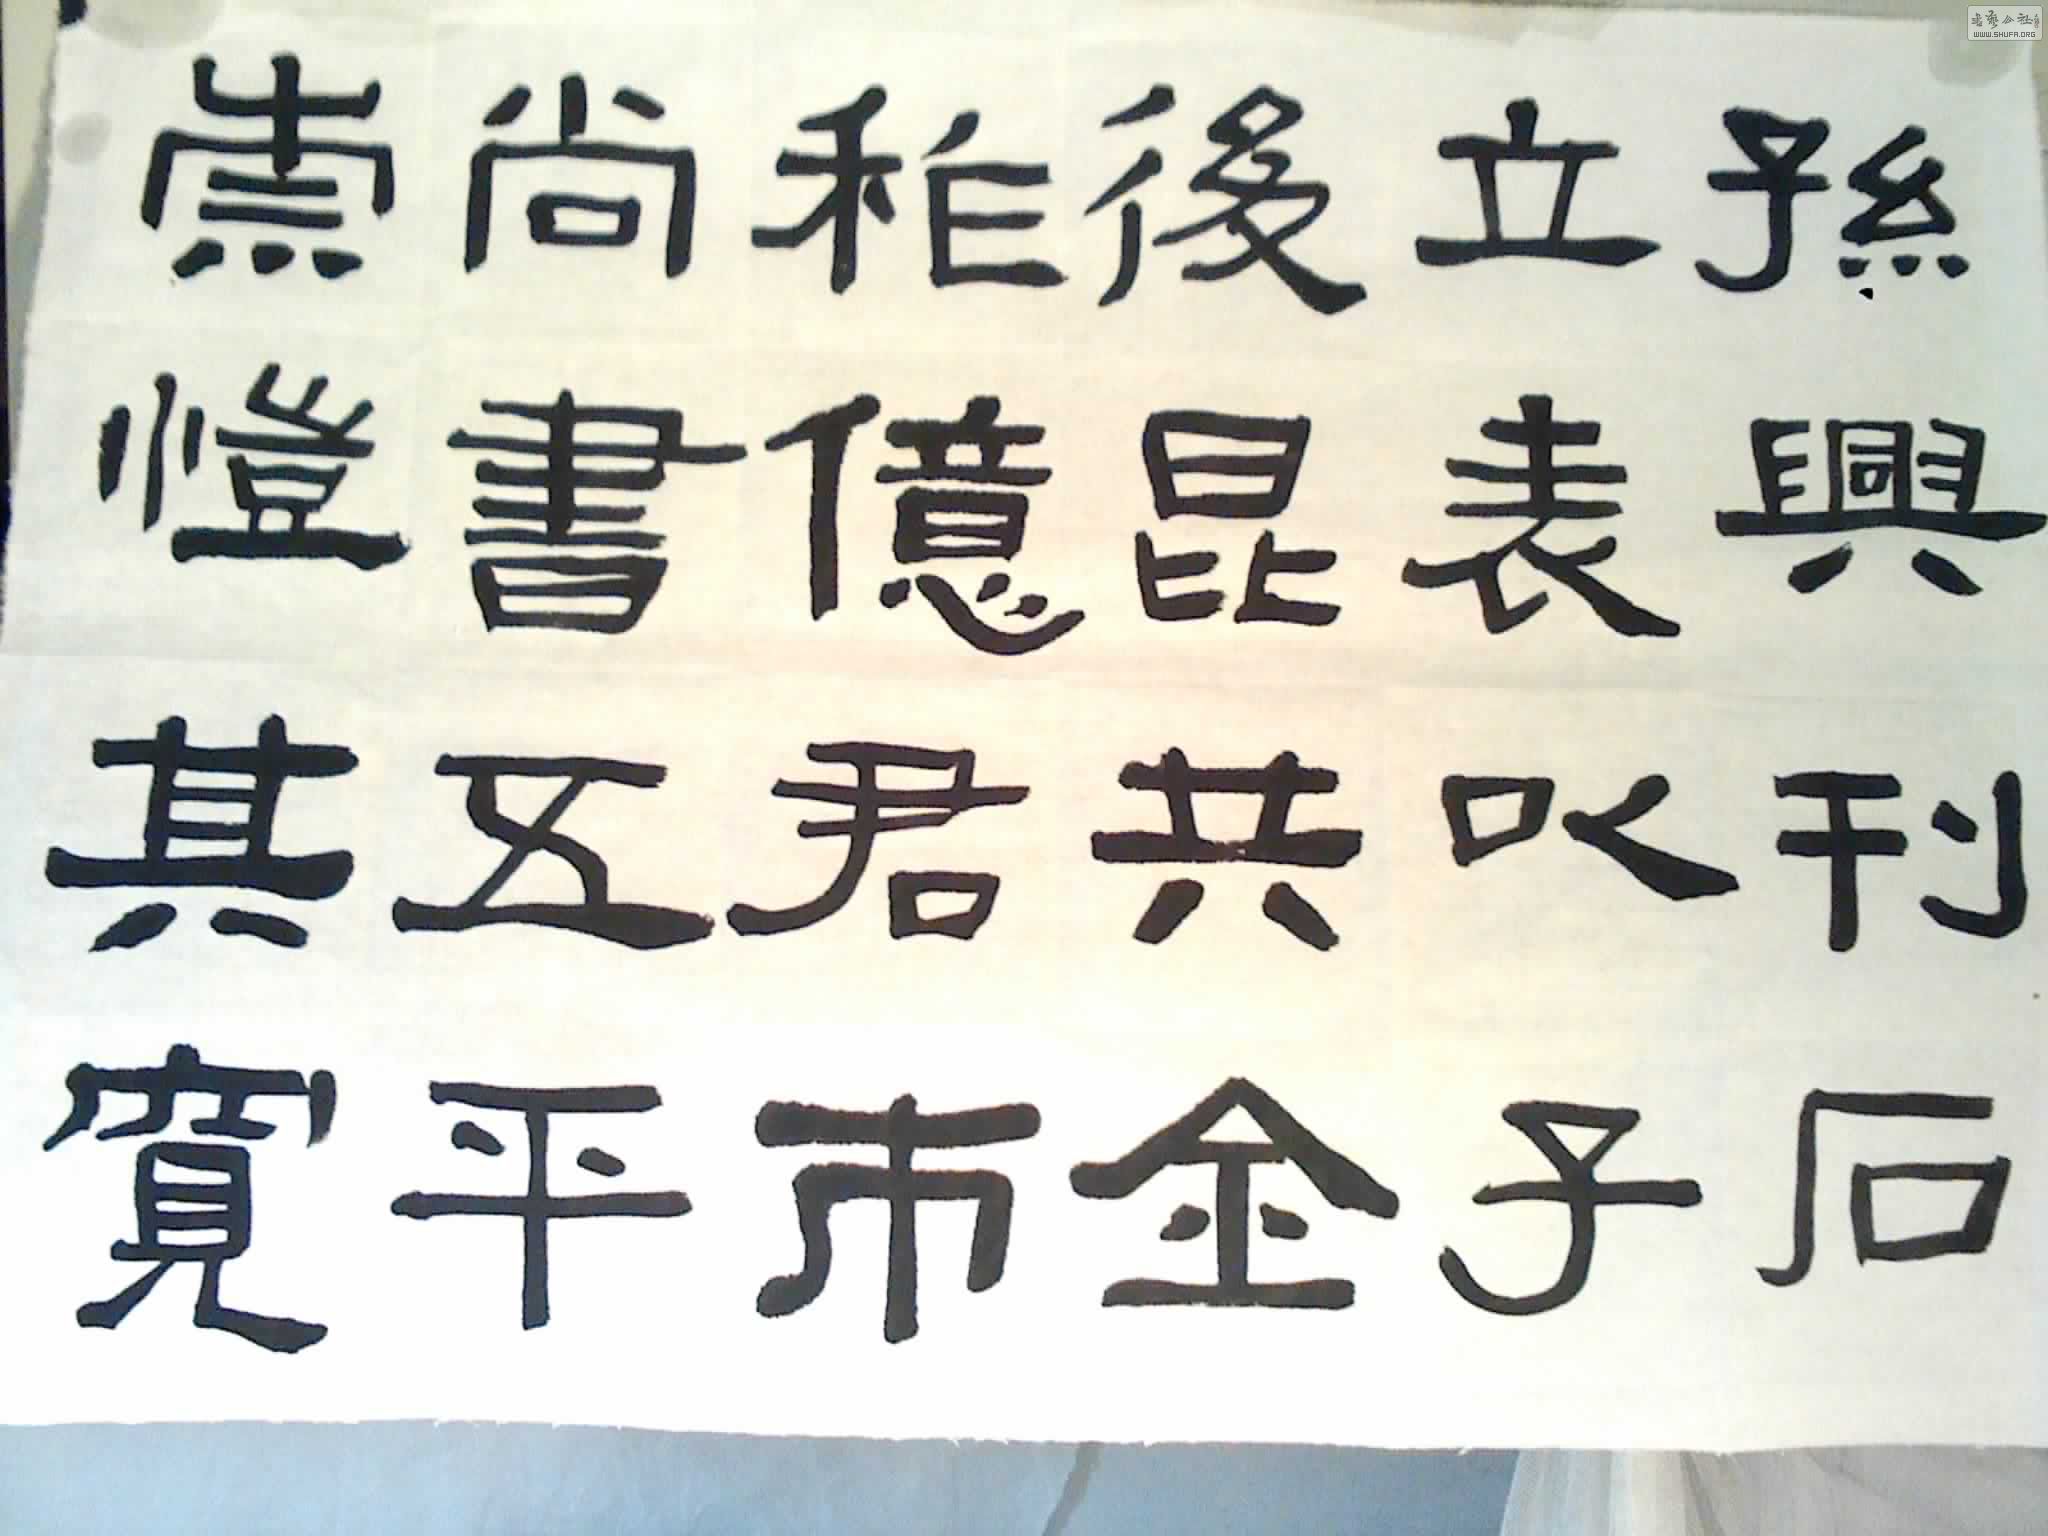 孫興刊石
立表以子
後昆共金
祚億君市
尚書五平
崇愷其寬
書藝公社
WWW.SHUFA.ORG